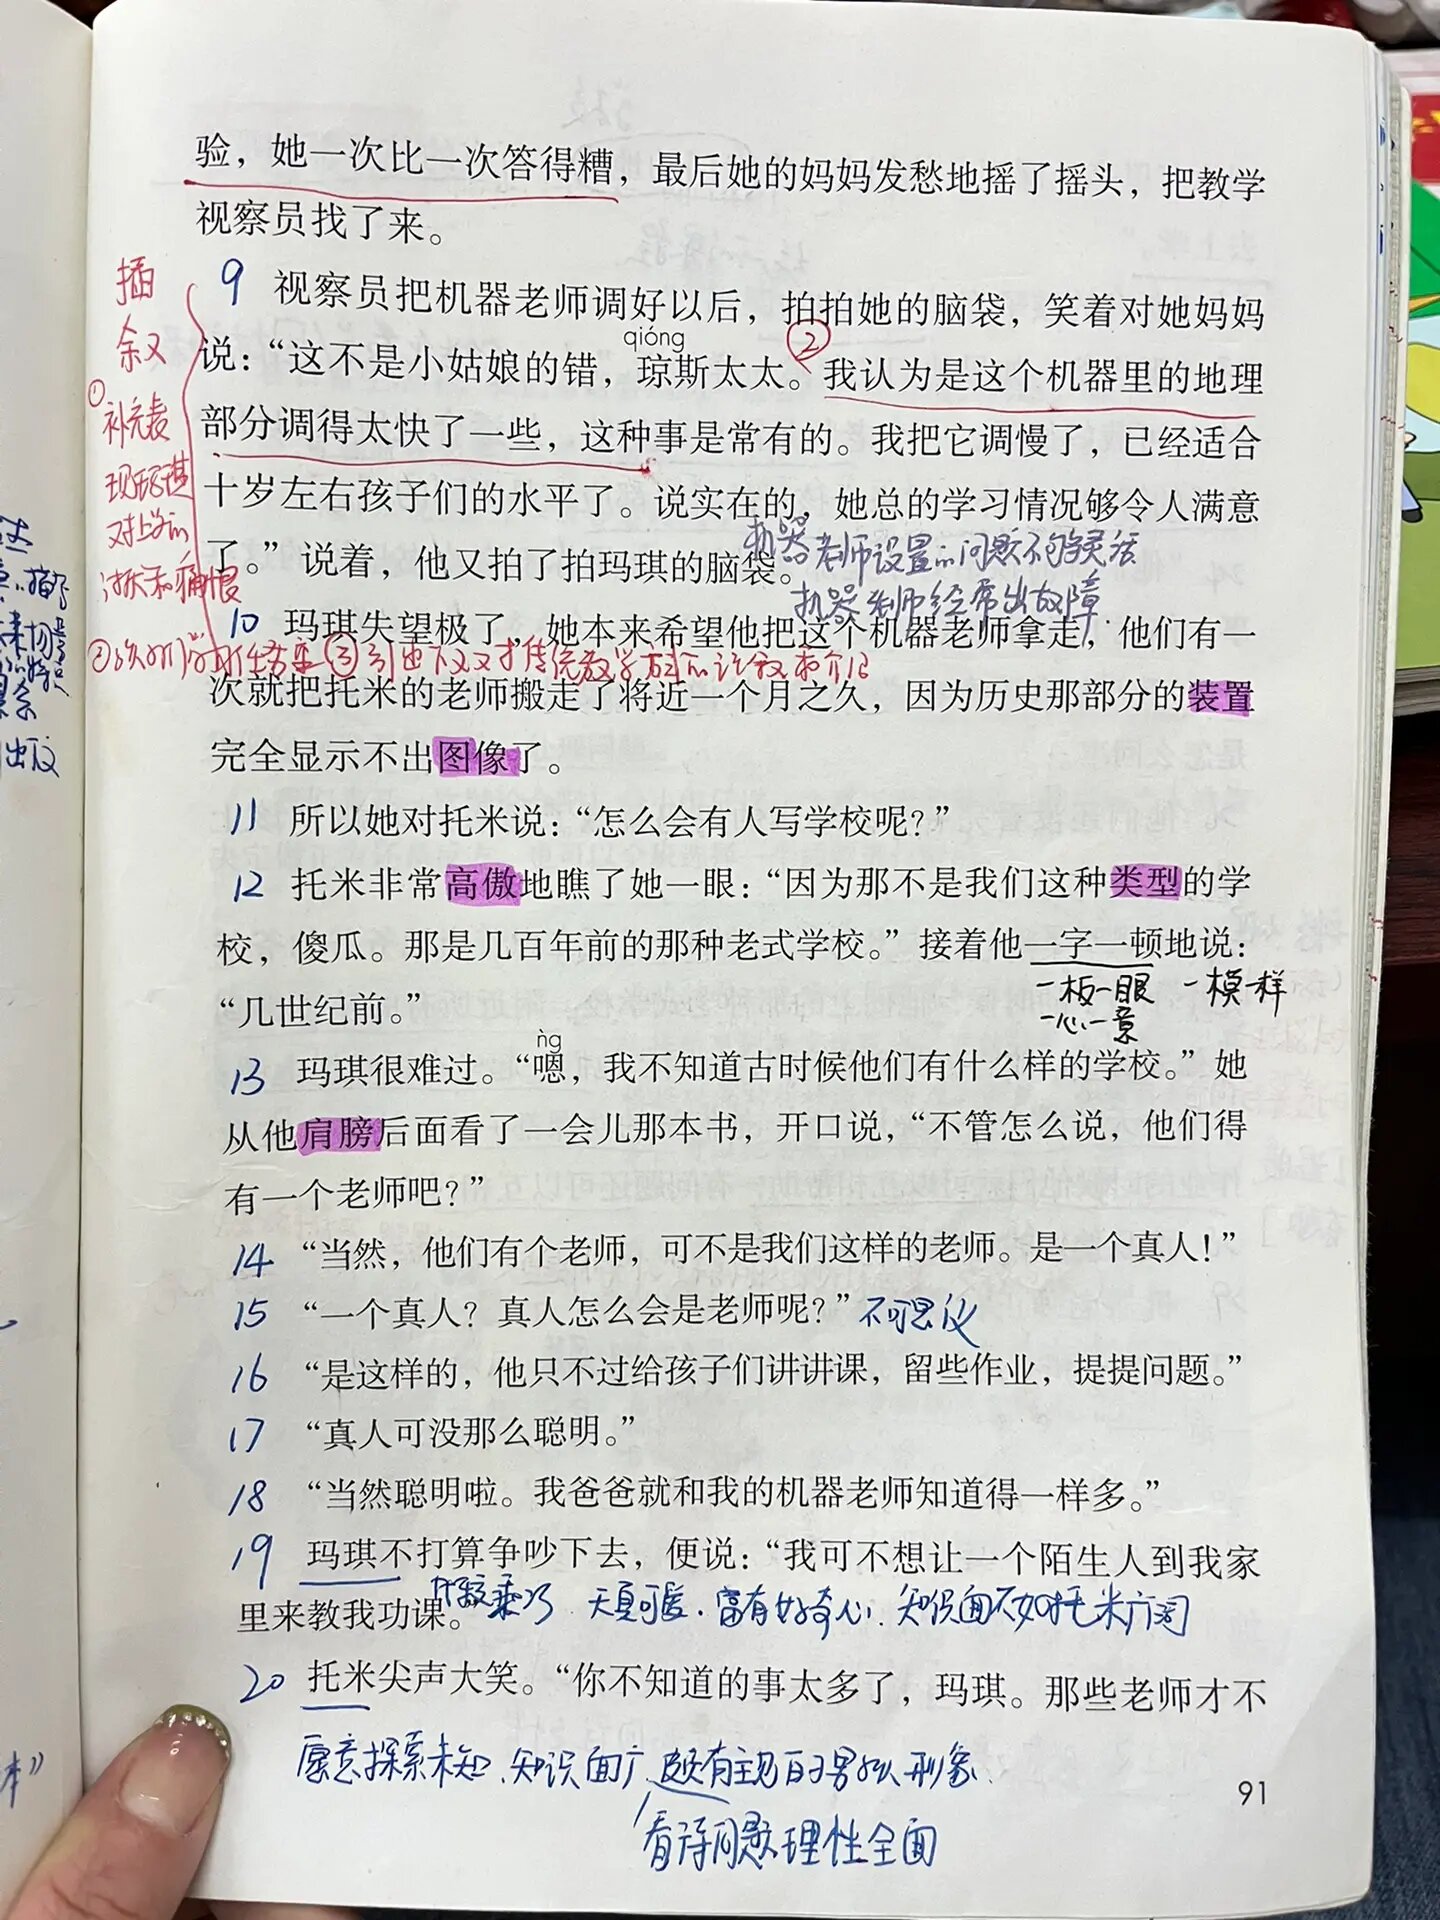 验，她一次比一次答得糟，最后她的妈妈发愁地摇了摇头，把教学
视察员找了来。
插
叙
①
补充表
现玛琪
对上学的
讨厌和痛恨
9 视察员把机器老师调好以后，拍拍她的脑袋，笑着对她妈妈
qióng
②
说：“这不是小姑娘的错，琼斯太太。我认为是这个机器里的地理
部分调得太快了一些，这种事是常有的。我把它调慢了，已经适合
十岁左右孩子们的水平了。说实在的，她总的学习情况够令人满意
了。”说着，他又拍了拍玛琪的脑袋。
机器老师设置的问题不够灵活
机器老师经常出故障.
10 玛琪失望极了，她本来希望他把这个机器老师拿走，他们有一
③引出下文对传统教学方式的
次就把托米的老师搬走了将近一个月之久，因为历史那部分的装置
完全显示不出图像了。
11 所以她对托米说：“怎么会有人写学校呢？”
12 托米非常高傲地瞧了她一眼：“因为那不是我们这种类型的学
校，傻瓜。那是几百年前的那种老式学校。”接着他一字一顿地说：
一板一眼 一模一样
一心一意
“几世纪前。”
ǹg
13 玛琪很难过。“嗯，我不知道古时候他们有什么样的学校。”她
从他肩膀后面看了一会儿那本书，开口说，“不管怎么说，他们得
有一个老师吧？”
14 “当然，他们有个老师，可不是我们这样的老师。是一个真人！”
15 “一个真人？真人怎么会是老师呢？”不可思议
16 “是这样的，他只不过给孩子们讲讲课，留些作业，提提问题。”
17 “真人可没那么聪明。”
18 “当然聪明啦。我爸爸就和我的机器老师知道得一样多。”
19 玛琪不打算争吵下去，便说：“我可不想让一个陌生人到我家
里来教我功课。”
乖巧 天真可爱.富有好奇心.知识面不如托米广阔
20 托米尖声大笑。“你不知道的事太多了，玛琪。那些老师才不
愿意探索未知.知识面广.颇有主见的男孩形象.
看待问题理性全面
91